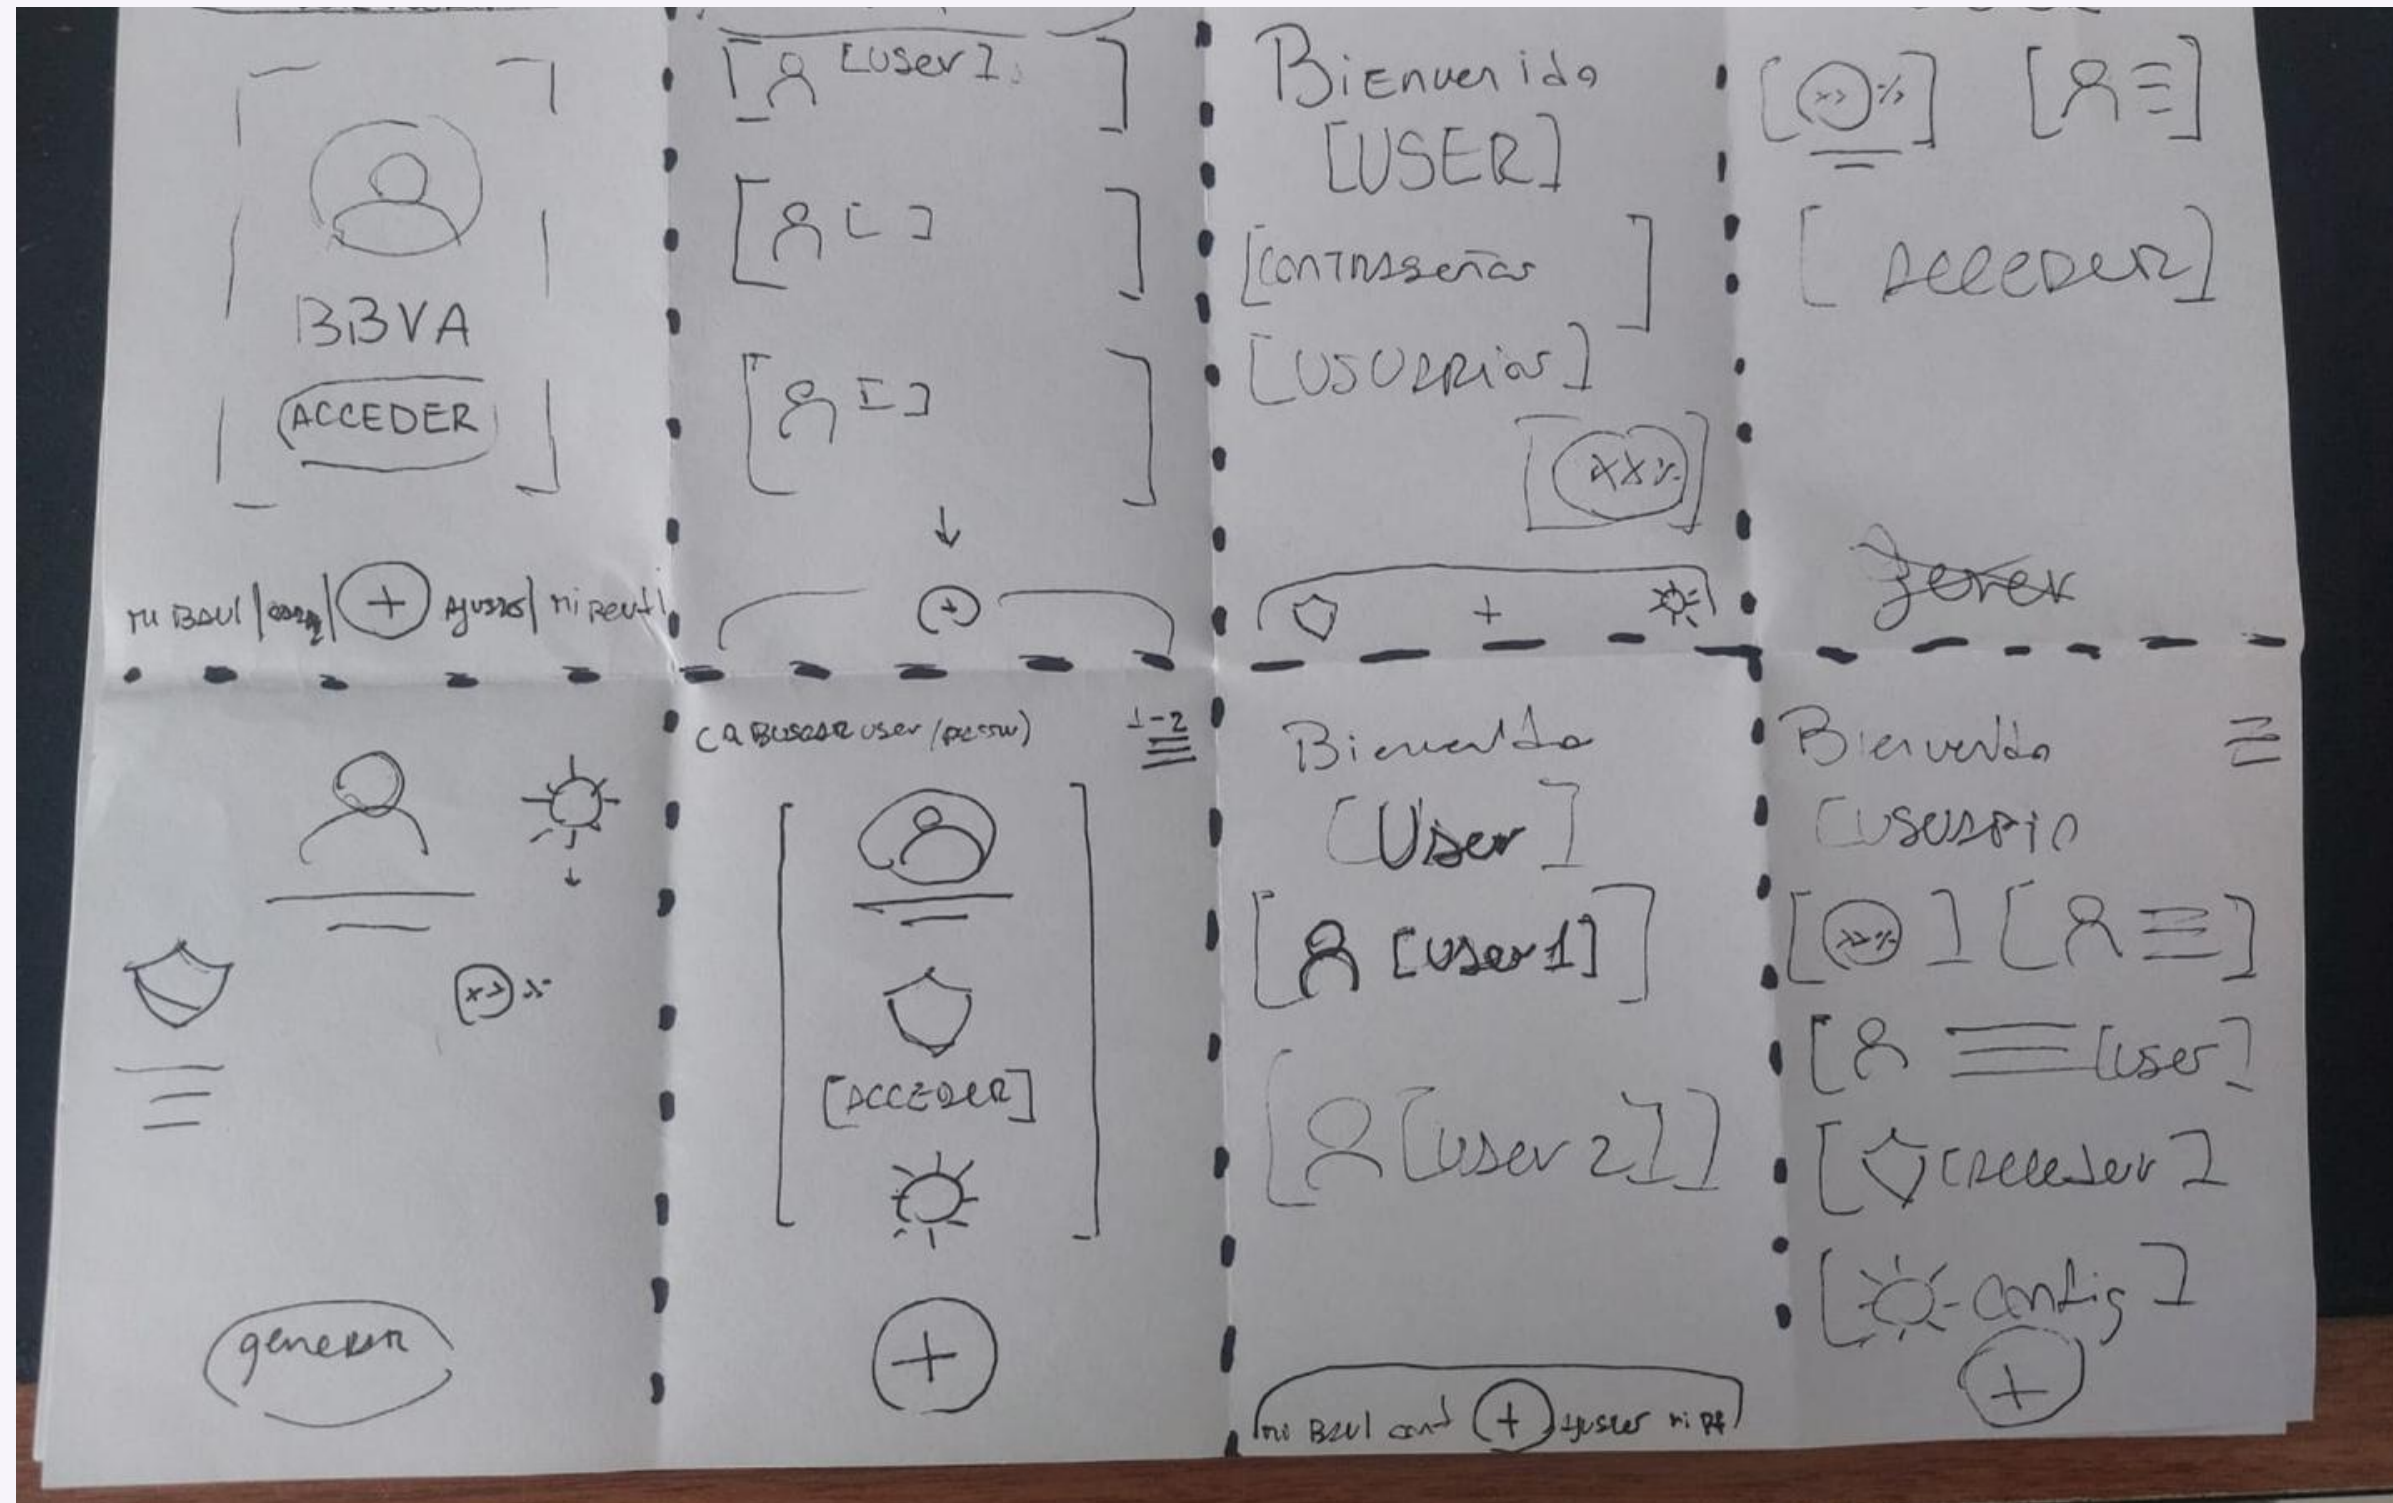 BBVA
ACCEDER
mi BAul / / + Ajustes / mi perfil
[User]
[ ]
[ ]
+
Bienvenido
[USER]
[CONTRAseñas]
[USUARios]
XX%
+
[ XX % ]
[ Acceder ]
XX %
generar
(Q BUSCAR User / passw)
1-2
[ACCEDER]
+
Bienvenido
[User]
[User 1]
[User 2]
mi BAul + Ajustes mi
Bienvenido
[USUARio
[ XX % ]
[User]
[Acceder]
[ config ]
+